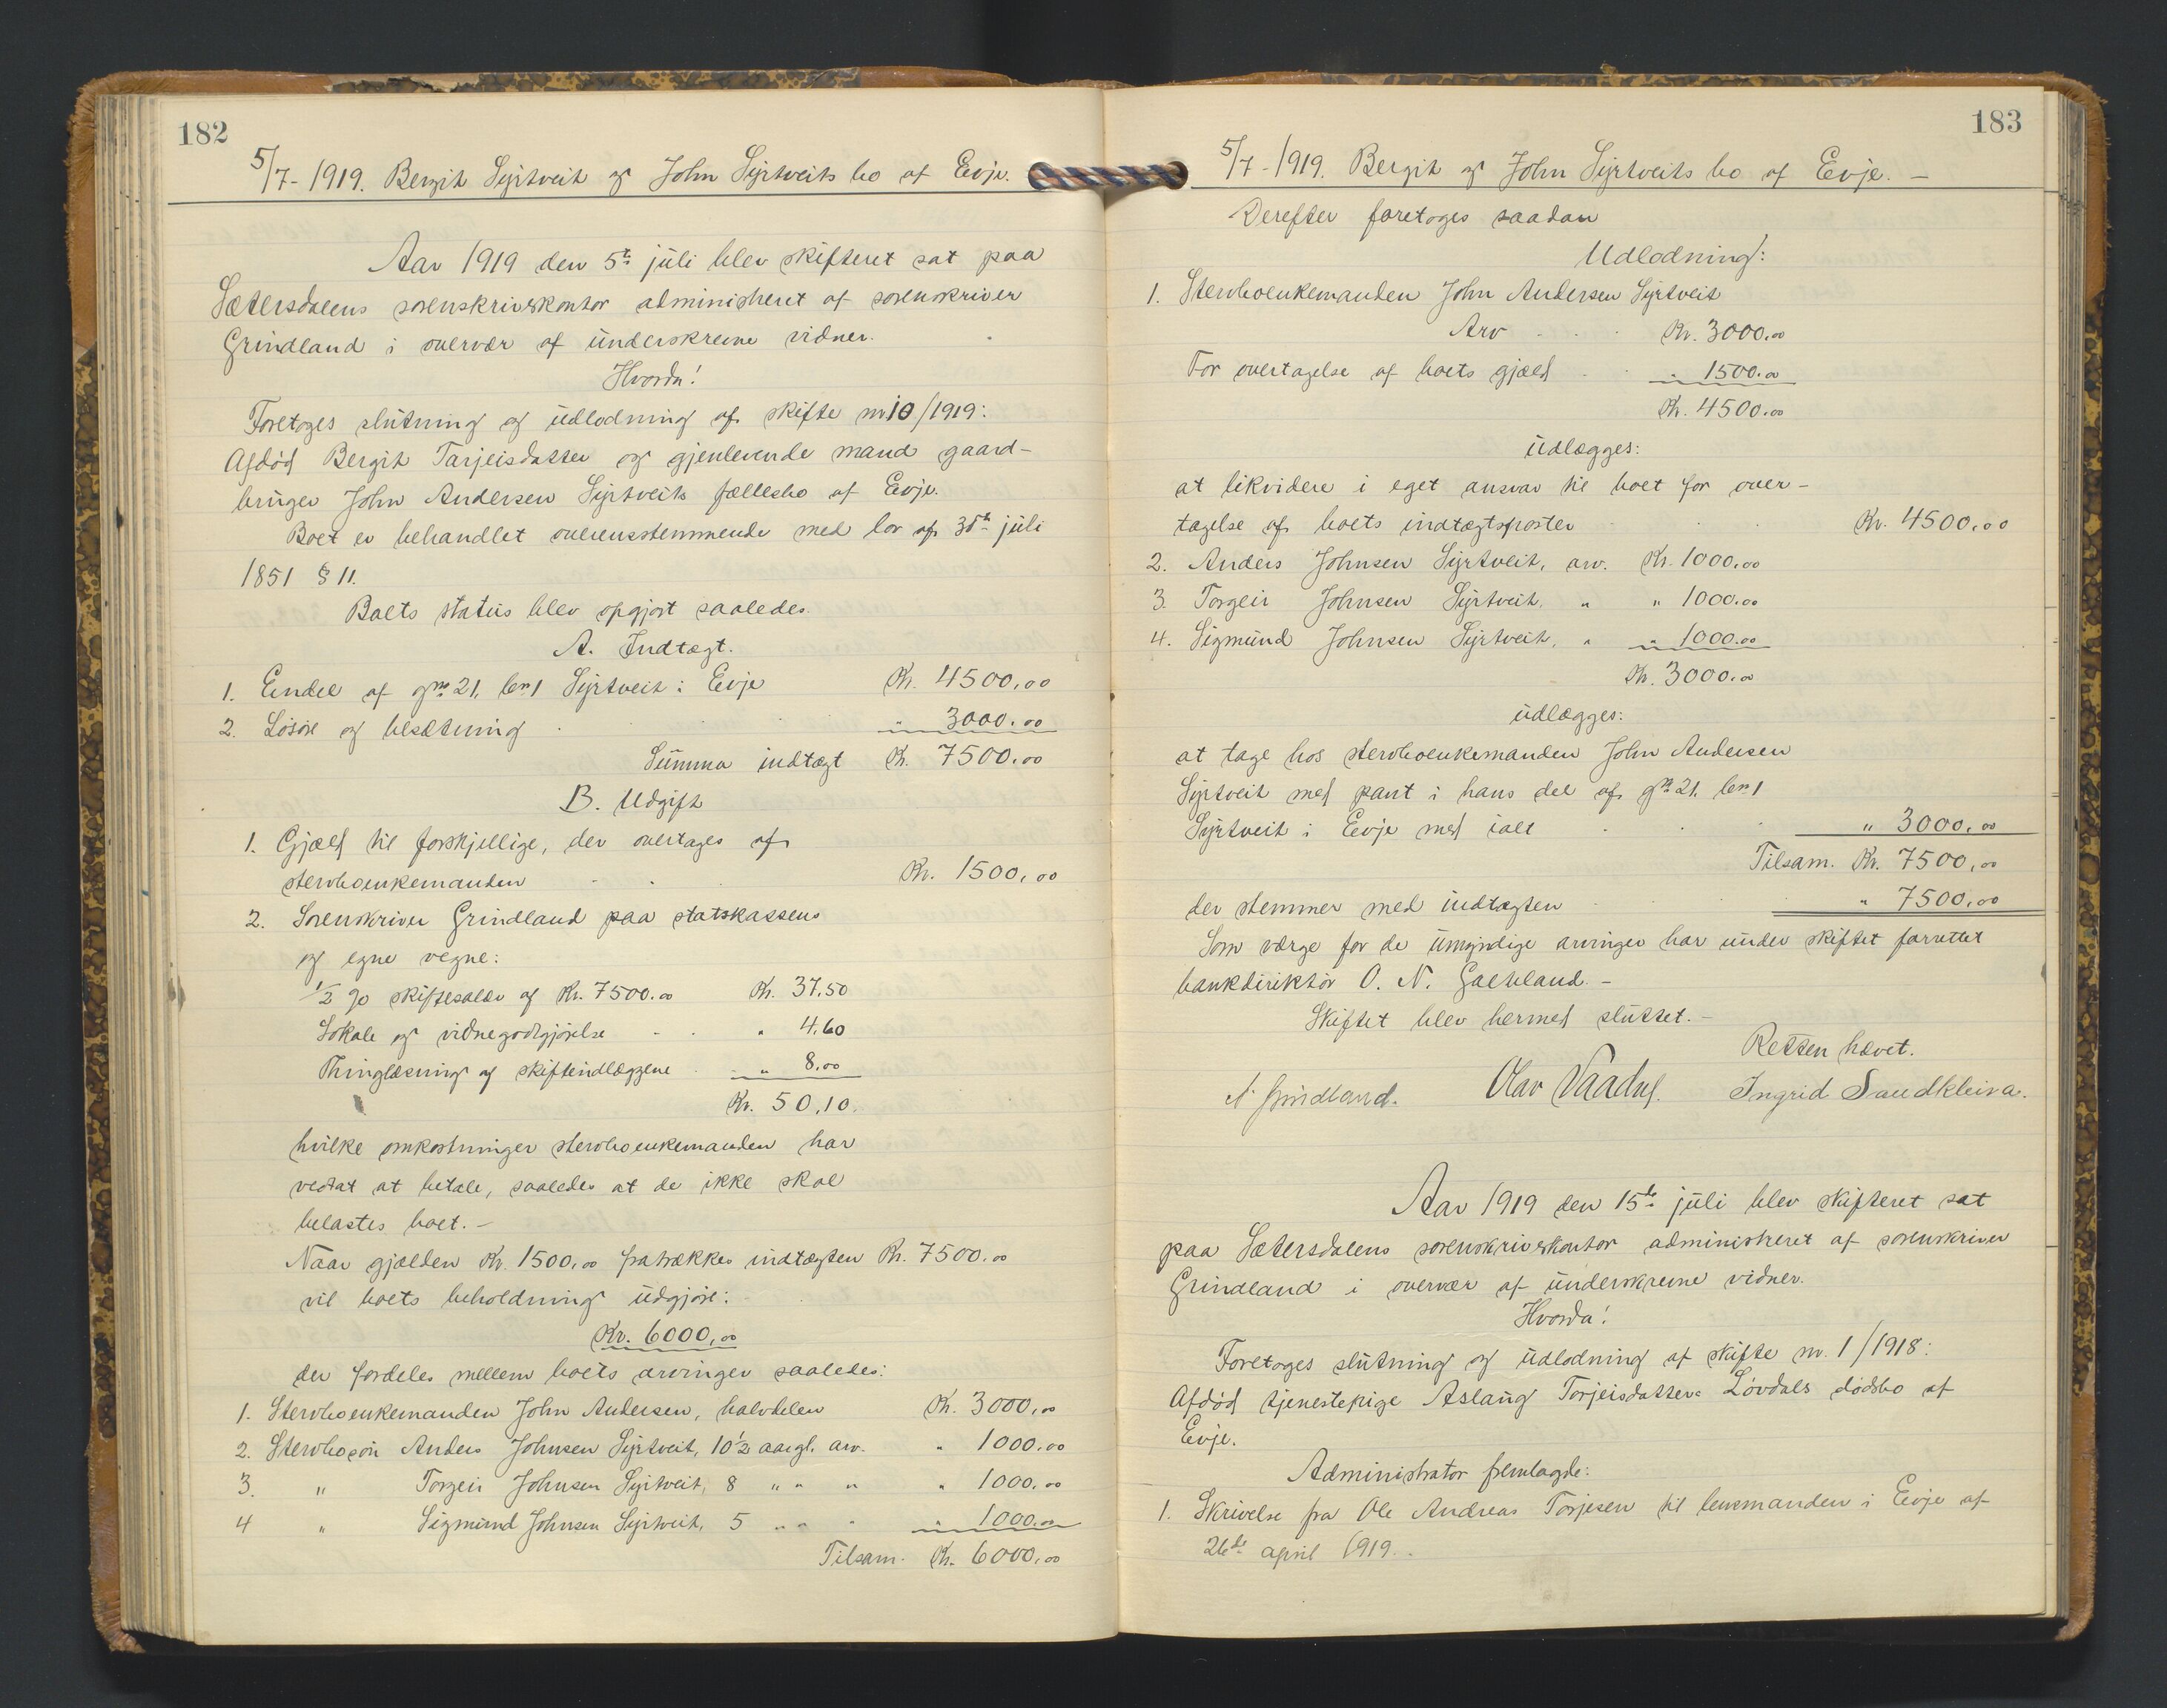 182
5/7-1919. Bergit Syrtveit og John Syrtveits bo af Evje.
Aar 1919 den 5te juli blev skifteret sat paa
Sætersdalens sorenskriverkontor administreret af sorenskriver
Grindland i overvær af underskrevne vidner.
Hvorda!
Foretoges slutning og udlodning af skifte nr 10/1919:
Afdød Bergit Tarjeisdatter og gjenlevende mand gaard-
bruger John Andersen Syrtveits fællesbo af Evje.
Boet er behandlet overensstemmende med lov af 30te juli
1851 § 11.
Boets status blev opgjort saaledes.
A. Indtægt.
1. Endel af gno 21, bno 1 Syrtveit i Evje Kr. 4500,00
2. Løsøre og besætning " 3000.00
Summa indtægt Kr. 7500.00
B. Udgift
1. Gjæld til forskjellige, der overtages af
stervboenkemanden Kr. 1500,00
2. Sorenskriver Grindland paa statskassens
og egne vegne:
1/2 % skiftesalær af Kr. 7500.00 Kr. 37,50
Lokale og vidnegodtgjørelse " 4,60
Thinglæsning af skifteudlæggene " 8,00
Kr. 50,10.
hvilke omkostninger stervboenkemanden har
vedtat at betale, saaledes at de ikke skal
belastes boet. –
Naar gjælden Kr. 1500,00 fratrækkes indtægten Kr. 7500.00
vil boets beholdning udgjøre:
Kr. 6000,00
der fordeles mellem boets arvinger saaledes:
1. Stervboenkemanden John Andersen, halvdelen Kr. 3000,00
2. Stervbosøn Anders Johnsen Syrtveit, 10 1/2 aar gl. arv. " 1000.00
3. " Torgeir Johnsen Syrtveit, 8 " " " " 1000,00
4 " Sigmund Johnsen Syrtveit, 5 " " " " 1000.00
Tilsam. Kr. 6000,00
183
5/7-1919. Bergit og John Syrtveits bo af Evje. –
Derefter foretoges saadan
Udlodning:
1. Stervboenkemanden John Andersen Syrtveit
Arv Kr. 3000,00
For overtagelse af boets gjæld " 1500.00
Kr. 4500.00
udlægges:
at likvidere i eget ansvar til boet for over-
tagelse af boets indtægtsposter Kr. 4500,00
2. Anders Johnsen Syrtveit, arv. Kr. 1000,00
3. Torgeir Johnsen Syrtveit, " " 1000.00
4. Sigmund Johnsen Syrtveit, " " 1000.00
Kr. 3000.00
udlægges:
at tage hos stervboenkemanden John Andersen
Syrtveit med pant i hans del af gno 21. bno 1
Syrtveit i Evje med ialt " 3000,00
Tilsam. Kr. 7500,00
der stemmer med indtægten " 7500,00
Som værge for de umyndige arvinger har under skiftet forrettet
bankdirektør O. N. Galteland. –
Skiftet blev hermed sluttet. –
Retten hævet.
Grindland. Olav Ingrid Sandkleiva.
Aar 1919 den 15de juli blev skifteret sat
paa Sætersdalens sorenskriverkontor administreret af sorenskriver
Grindland i overvær af underskrevne vidner.
Hvorda!
Foretoges slutning og udlodning af skifte nr. 1/1918:
Afdød tjenestepige Aslaug Torjeisdatter Løvdals dødsbo af
Evje.
Administrator fremlagde:
1. Skrivelse fra Ole Andreas Torjesen til lensmanden i Evje af
26de april 1919.